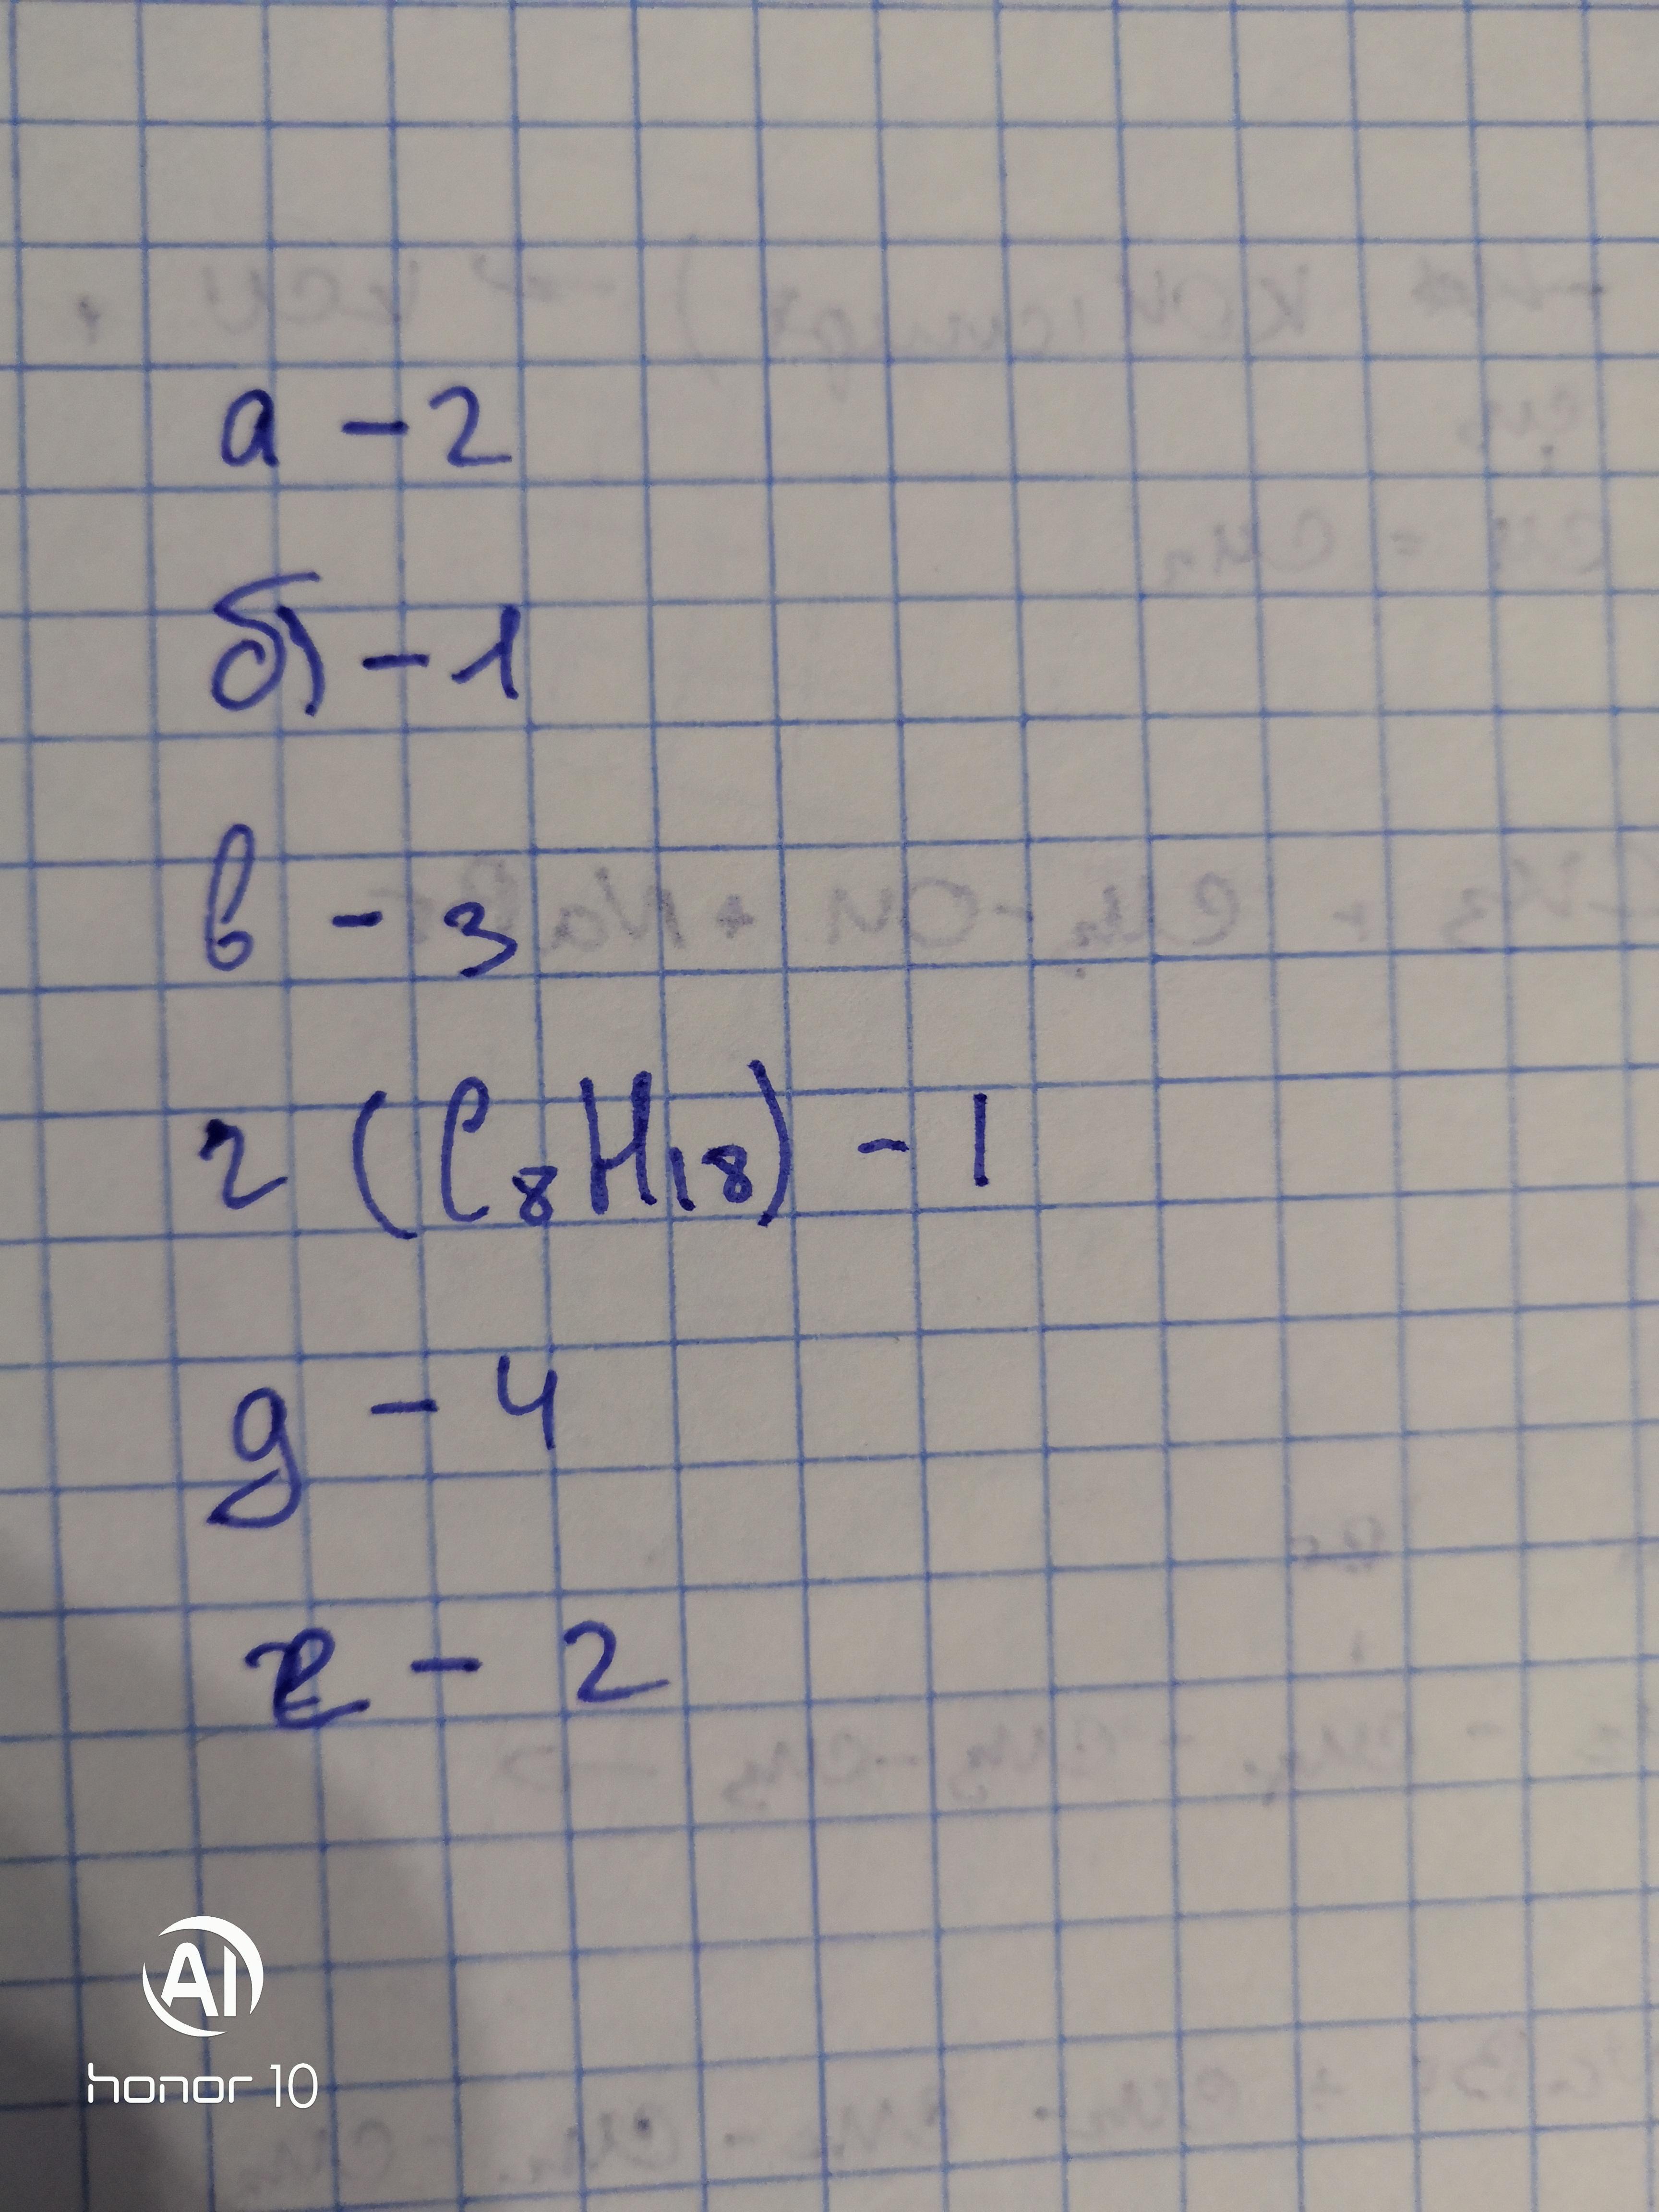 а - 2
б) - 1
в - 3
г (C₈H₁₈) - 1
д - 4
е - 2
AI
honor 10